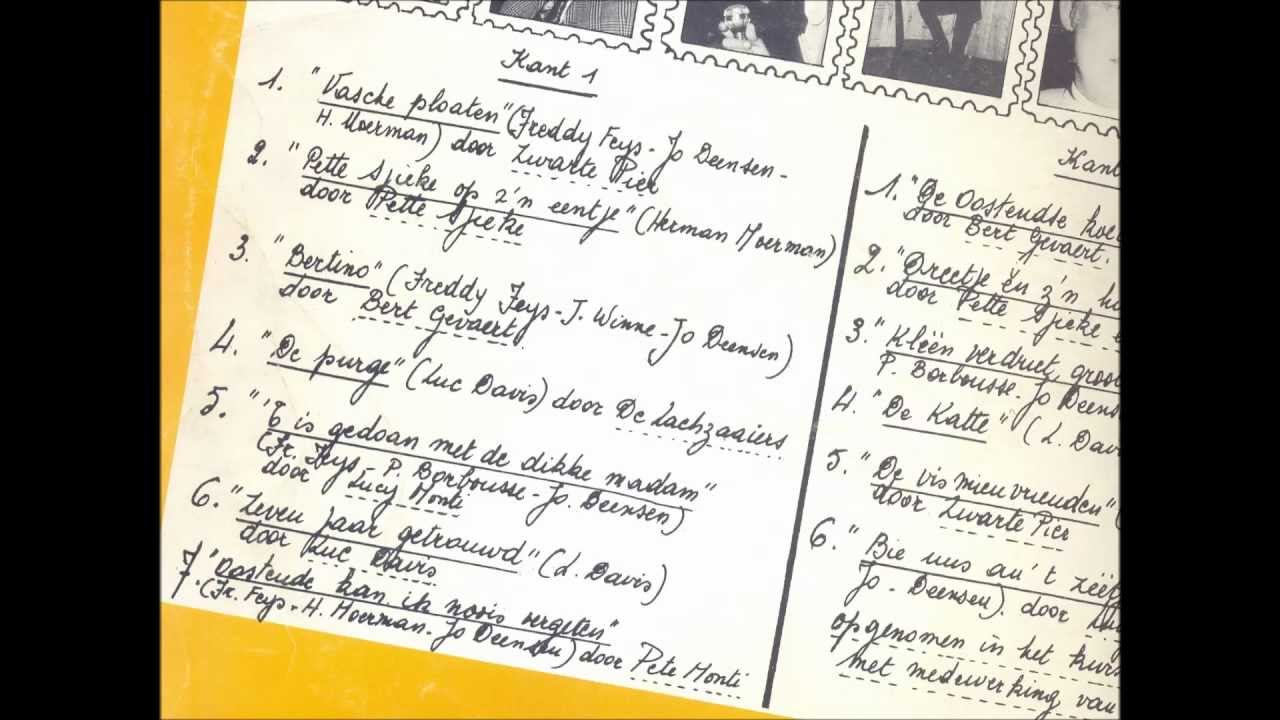 Kant 1
1. "Vasche ploaten" (Freddy Feys - Jo Deensen -
H. Moerman) door Zwarte Pier
2. "Pette Sjieke op z'n eentje" (Herman Moerman)
door Pette Sjieke
3. "Bertino" (Freddy Feys - J. Winne - Jo Deensen)
door Bert Gevaert
4. "De purge" (Luc Davis) door De Lachzaaiers
5. "'T is gedoan met de dikke madam"
(Fr. Feys - P. Borbousse - Jo. Deensen)
door Lucy Monti
6. "Zeven jaar getrouwd" (L. Davis)
door Luc Davis
7. "Oostende kan ik nooit vergeten"
(Fr. Feys - H. Moerman - Jo Deensen) door Pete Monti
Kant
1. "De Oostendse
door Bert Gevaert.
2. "Dreetje en z'n
door Pette Sjieke
3. "Kleën verdriet,
P. Borbousse. Jo Deensen
4. "De Katte" (L. Davis
5. "De vismieuvrienden" (
door Zwarte Pier
6. "Bie uus an 't
Jo - Deensen). door
opgenomen in het
met medewerking van